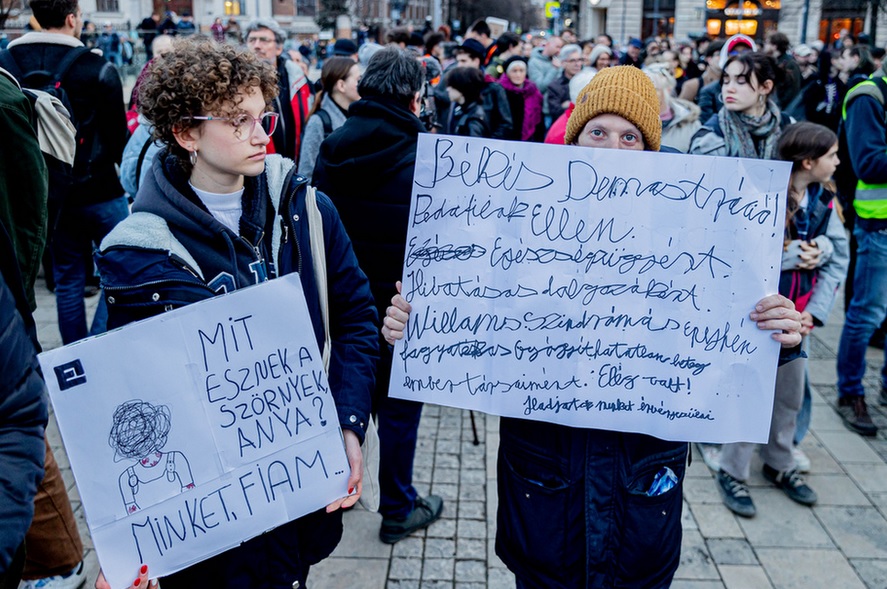 MIT
ESZNEK A
SZÖRNYEK
ANYA?
MINKET, FIAM...
Békés Demnastráció!
Pedofilak Ellen.
Egészségügyért.
Hivatásas dolgazákért.
Willams Szindrómás
fagyatékas Gyógyíthatatlan beteg
embertársaimért. Elég valt!
Hadjat minket érvényesülni